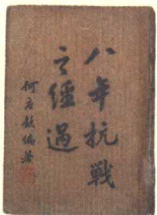 八年抗戰
之經過
何應欽編著